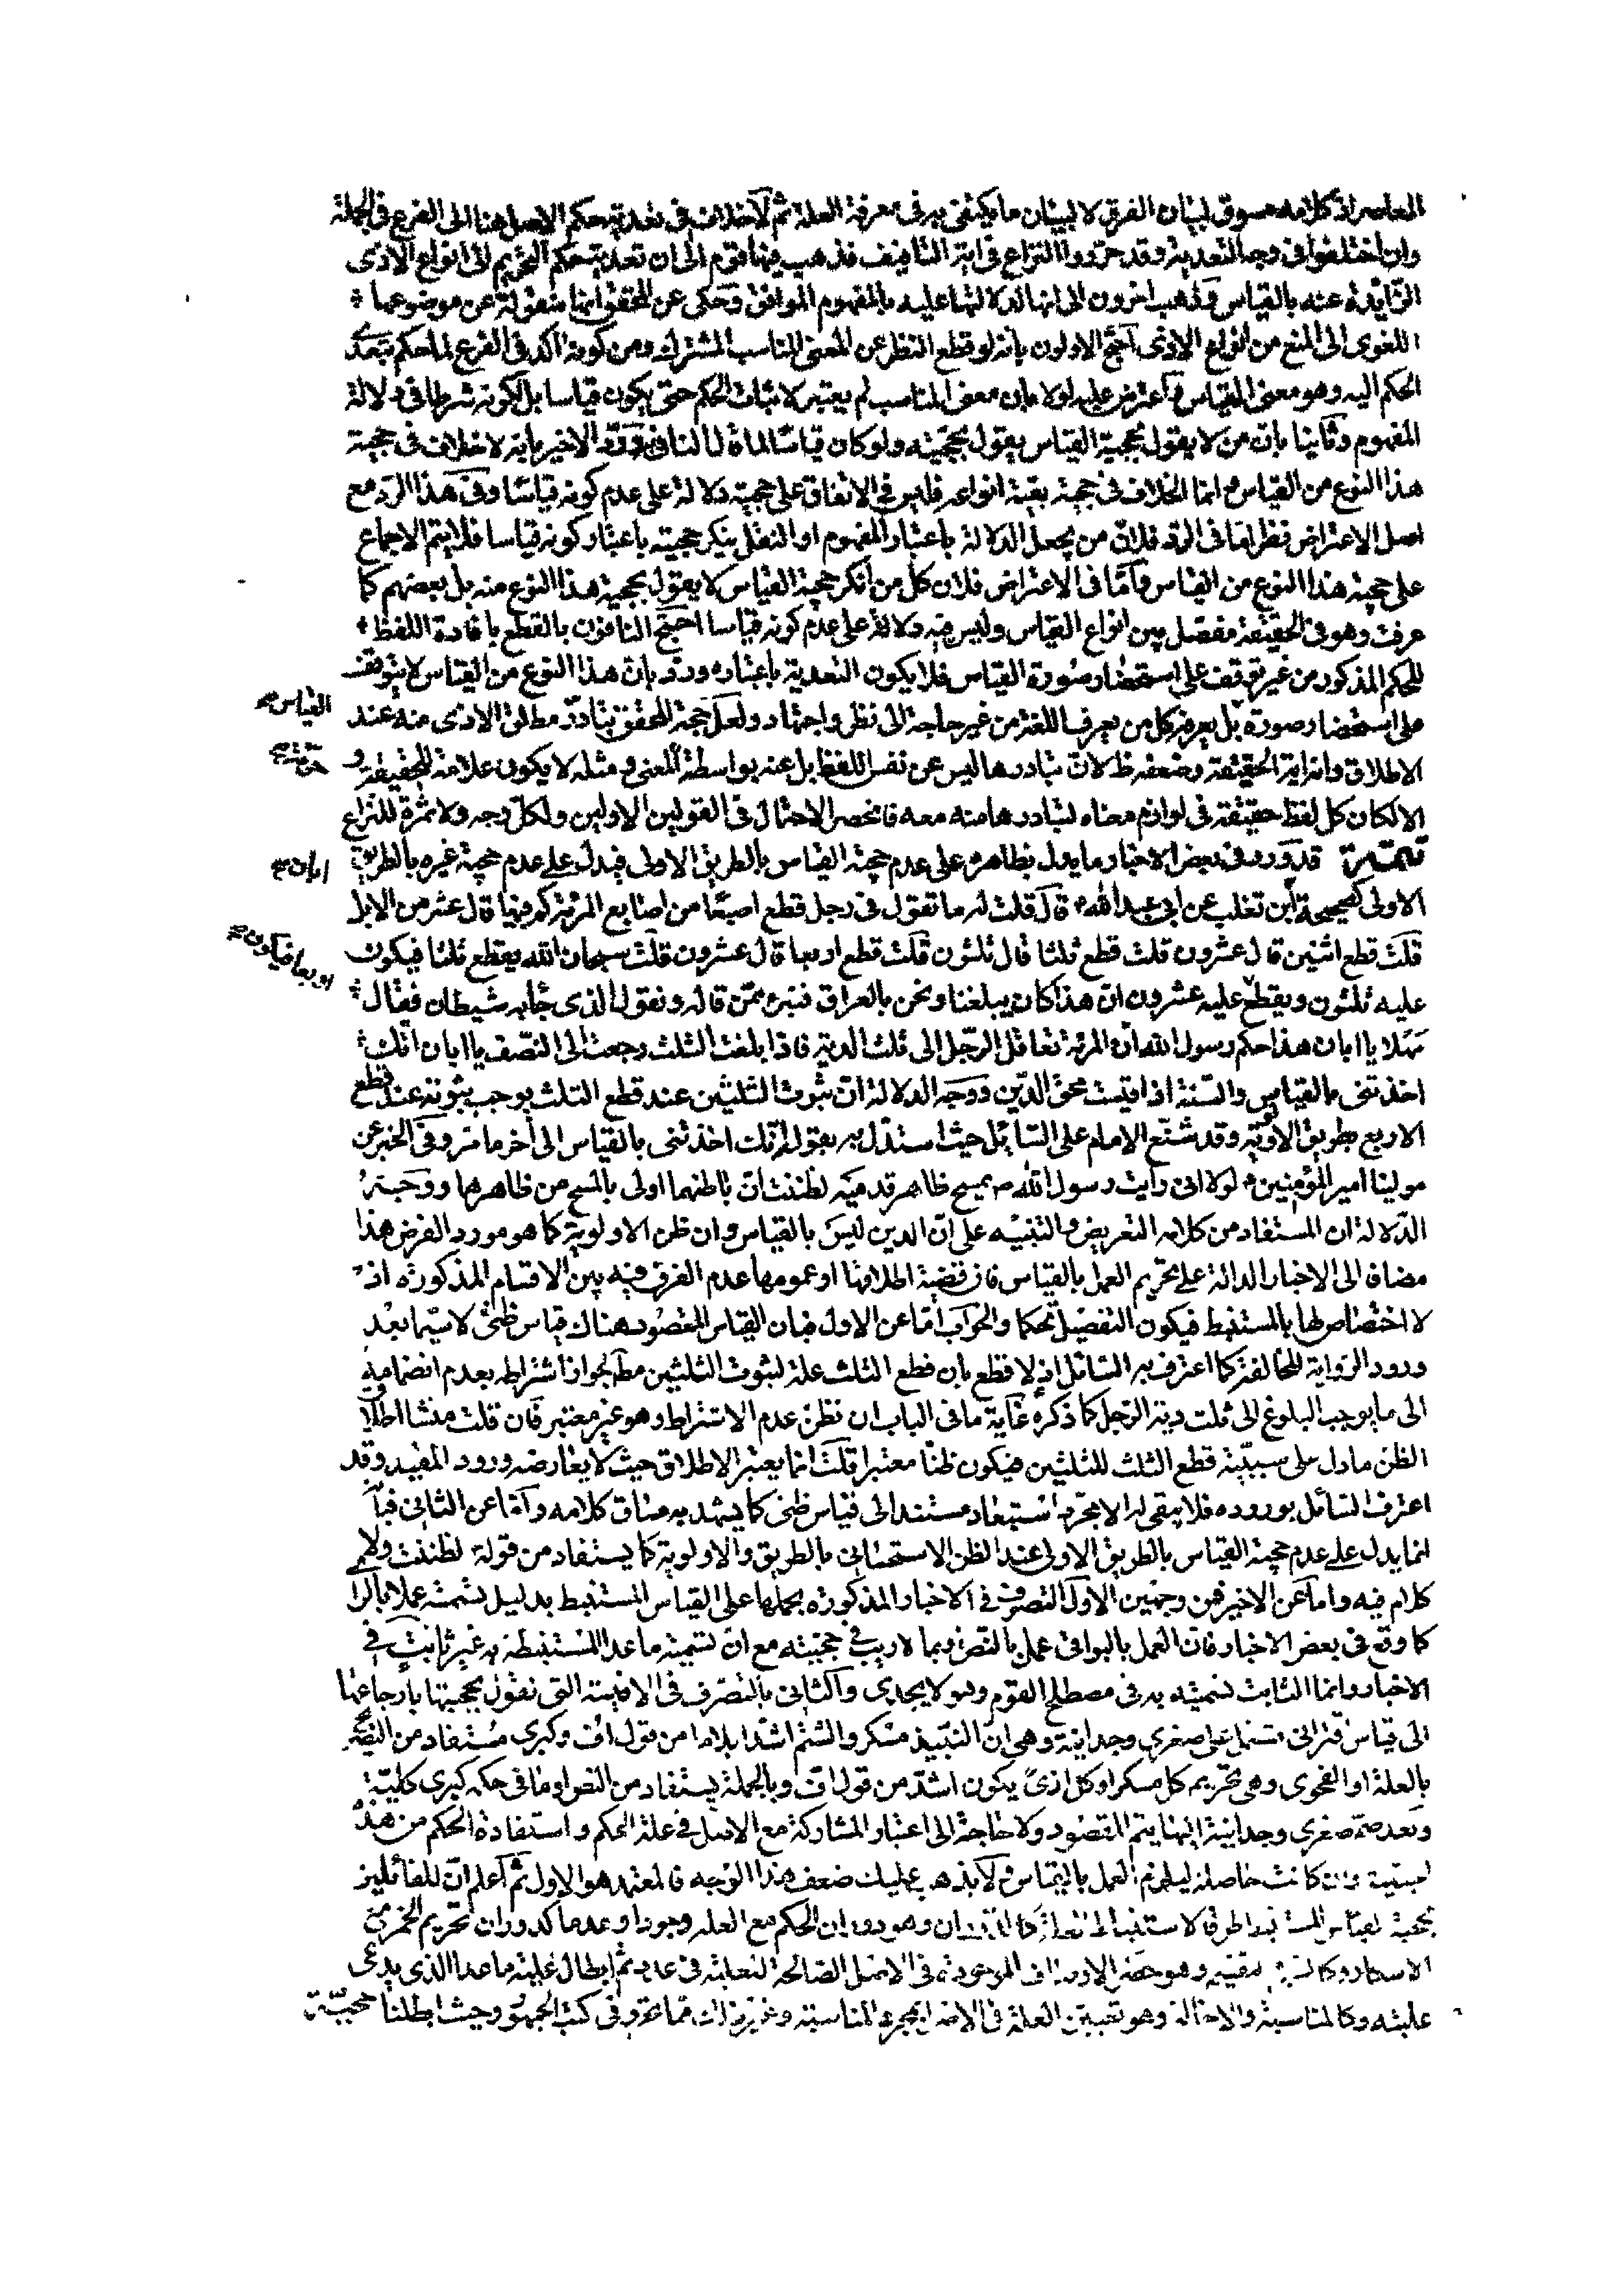 المعاصر اذ كلامه مسوق لبيان الفرق لا لبيان ما يكتفى به فى معرفة العلة ثم لا خلاف فى تعدية حكم الاصل هنا الى الفرع فى الجملة
وان اختلفوا فى وجه التعدية وقد حرروا النزاع فى اية التافيف فذهب فيها قوم الى ان تعدية حكم التحريم الى انواع الاذى
الزايدة عنه بالقياس وذهب اخرون الى انها لدلالتها عليه بالمفهوم الموافق وحكى عن المحقق انها منقولة عن موضوعها
اللغوى الى المنع من انواع الاذى احتج الاولون بانه لو قطع النظر عن المعنى المناسب المشترك ومن كونه اكد فى الفرع لما حكم بتعدى
الحكم اليه وهو معنى القياس واعترض عليه اولا بان معنى المناسب لم يعتبر لاثبات الحكم حتى يكون قياسا بل لكونه شرطا فى دلالة
المفهوم وثانيا بان من لا يقول بحجية القياس يقول بحجيته ولو كان قياسا لما قال النافى ورد الاخير بانه لا خلاف فى حجية
هذا النوع من القياس انما الخلاف فى حجية بقية انواعه فليس فى الاتفاق على حجيته دلالة على عدم كونه قياسا وفى هذا الرد مع
اصل الاعتراض نظر اما فى الرد فلان من يجعل الدلالة باعتبار المفهوم او النقل ينكر حجيته باعتبار كونه قياسا فلا يتم الاجماع
على حجية هذا النوع من القياس واما فى الاعتراض فلان كل من انكر حجية القياس لا يقول بحجية هذا النوع منه بل بعضهم كما
عرفت وهو فى الحقيقة مفصل بين انواع القياس وليس فيه دلالة على عدم كونه قياسا احتج النافون بالقطع بافادة اللفظ
للحكم المذكور من غير توقف على استحضار صورة القياس فلا يكون التعدية باعتباره ورد بان هذا النوع من القياس لا يتوقف
على استحضار صورة بل يعرفه كل من يعرف اللغة من غير حاجة الى نظر واجتهاد ولعل حجة المحقق تبادر مطلق الاذى منه عند
القياس
الاطلاق وانه اية الحقيقة وضعفه ظ لان تبادرها ليس عن نفس اللفظ بل عنه بواسطة المعنى ومثله لا يكون علامة للحقيقة و
الا لكان كل لفظ حقيقة فى لوازم معناه لتبادرها منه معه فانحصر الاحتمال فى القولين الاولين ولكل وجه ولا ثمرة للنزاع
تتمة قد ورد فى بعض الاخبار ما يدل بظاهره على عدم حجية القياس بالطريق الاولى فيدل على عدم حجية غيره بالطريق
ابان
الاولى كصحيحة ابن تغلب عن ابى عبد الله قال قلت له ما تقول فى رجل قطع اصبعا من اصابع المرئة كم فيها قال عشر من الابل
قلت قطع اثنين قال عشرون قلت قطع ثلثا قال ثلثون قلت قطع اربعا قال عشرون قلت سبحان الله يقطع ثلثا فيكون
اربعا فيكون
عليه ثلثون ويقطع عليه عشرون ان هذا كان يبلغنا ونحن بالعراق فنبرء ممن قاله ونقول الذى جاء به شيطان فقال
مهلا يا ابان هذا حكم رسول الله ان المرئة تعاقل الرجل الى ثلث الدية فاذا بلغت الثلث رجعت الى النصف يا ابان انك
اخذتنى بالقياس والسنة اذا قيست محق الدين ووجه الدلالة ان ثبوت الثلثين عند قطع الثلث يوجب ثبوته عند قطع
الاربع بطريق الاولوية وقد شنع الامام على السائل حيث استدل به بقوله انك اخذتنى بالقياس الى اخر ما مر وفى الخبر عن
مولينا امير المؤمنين لولا انى رايت رسول الله يمسح ظاهر قدميه لظننت ان باطنهما اولى بالمسح من ظاهرهما ووجه
الدلالة ان المستفاد من كلامه التعريض والتنبيه على ان الدين ليس بالقياس وان ظن الاولوية كما هو مورد الفرض هذا
مضافا الى الاخبار الدالة على تحريم العمل بالقياس فان قضية اطلاقها او عمومها عدم الفرق فيه بين الاقسام المذكورة اذ
لا اختصاص لها بالمستنبط فيكون التفصيل تحكما والجواب اما عن الاول فبان القياس المقصود هناك قياس ظنى لا سيما بعد
ورود الرواية المخالفة كما اعترف به السائل اذ لا قطع بان قطع الثلث علة لثبوت الثلثين مط لجواز اشتراطه بعدم انضمامه
الى ما يوجب البلوغ الى ثلث دية الرجل كما ذكره غاية ما فى الباب ان نظن عدم الاشتراط وهو غير معتبر فان قلت منشا
الظن ما دل على سببية قطع الثلث للثلثين فيكون ظنا معتبرا قلت انما يعتبر الاطلاق حيث لا يعارضه ورود المقيد وقد
اعترف السائل بوروده فلا يبقى له الا مجرد استبعاد مستند الى قياس ظنى كما يشهد به مساق كلامه واما عن الثانى
انما يدل على عدم حجية القياس بالطريق الاولى عند الظن الاستحسانى بالطريق والاولوية كما يستفاد من قوله لظننت ولا
كلام فيه واما عن الاخير فمن وجهين الاول التصرف فى الاخبار المذكورة بحملها على القياس المستنبط بدليل تسميته عملا
كما وقع فى بعض الاخبار فان العمل بالبواقى عمل بالنص وبما لا ريب فى حجيته مع ان تسمية ما عدا المستنبطة به غير ثابت فى
الاخبار وانما الثابت تسميته به فى مصطلح القوم وهو لا يجدى والثانى بالتصرف فى الاقيسة التى نقول بحجيتها بارجاعها
الى قياس اقترانى مشتمل على صغرى وجدانية وهى ان النبيذ مسكر والشتم اشد ايلاما من قول اف وكبرى مستفاد من
بالعلة او الفحوى وهى تحريم كل مسكر او كل اذى يكون اشد من قول اف وبالجملة يستفاد من النص او ما فى حكمه كبرى كلية
وبعد ضم صغرى وجدانية اليها يتم المقصود ولا حاجة الى اعتبار المشاركة مع الاصل فى علة الحكم واستفادة الحكم من هذه
وان كانت حاصلة ليلزم العمل بالقياس ولا يذهب عليك ضعف هذا الوجه فالمعتمد هو الاول ثم اعلم ان للقائلين
المستنبط طرقا لاستنباط العلة كالدوران وهو دوران الحكم مع العلة وجودا وعدما كدوران تحريم الخمر مع
الاسكار وهو حصر الاوصاف الموجودة فى الاصل الصالحة للعلية فى عدد ثم ابطال علية ما عدا الذى يدعى
عليته وكالمناسبة والاخالة وهو تعيين العلة فى الاصل بمجرد المناسبة وغير ذلك مما تقرر فى كتب الجمهور وحيث ابطلنا حجية